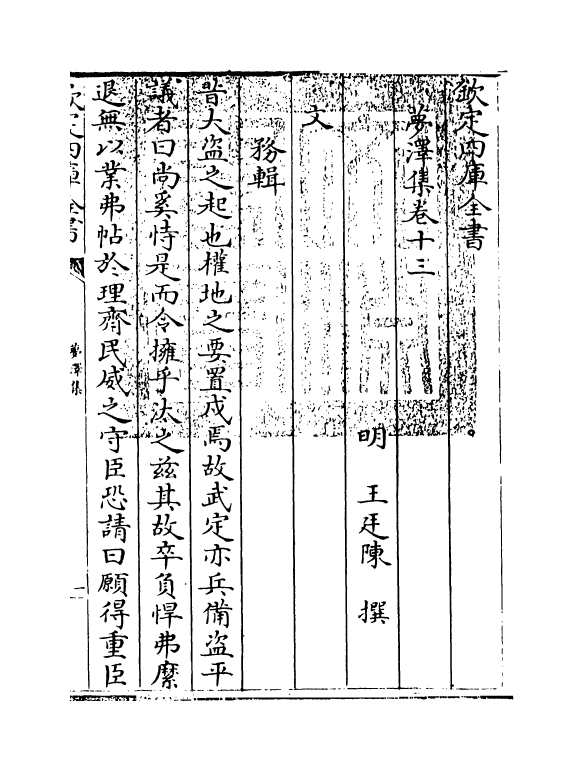 欽定四庫全書
夢澤集卷十三
明　王廷陳　撰
文
務輯
昔大盗之起也權地之要置戍焉故武定亦兵備盗平
議者曰尚奚恃是而令擁乎汰之兹其故卒負悍弗縻
退無以業弗帖於理齊民威之守臣恐請曰願得重臣
欽定四庫全書
夢澤集
一